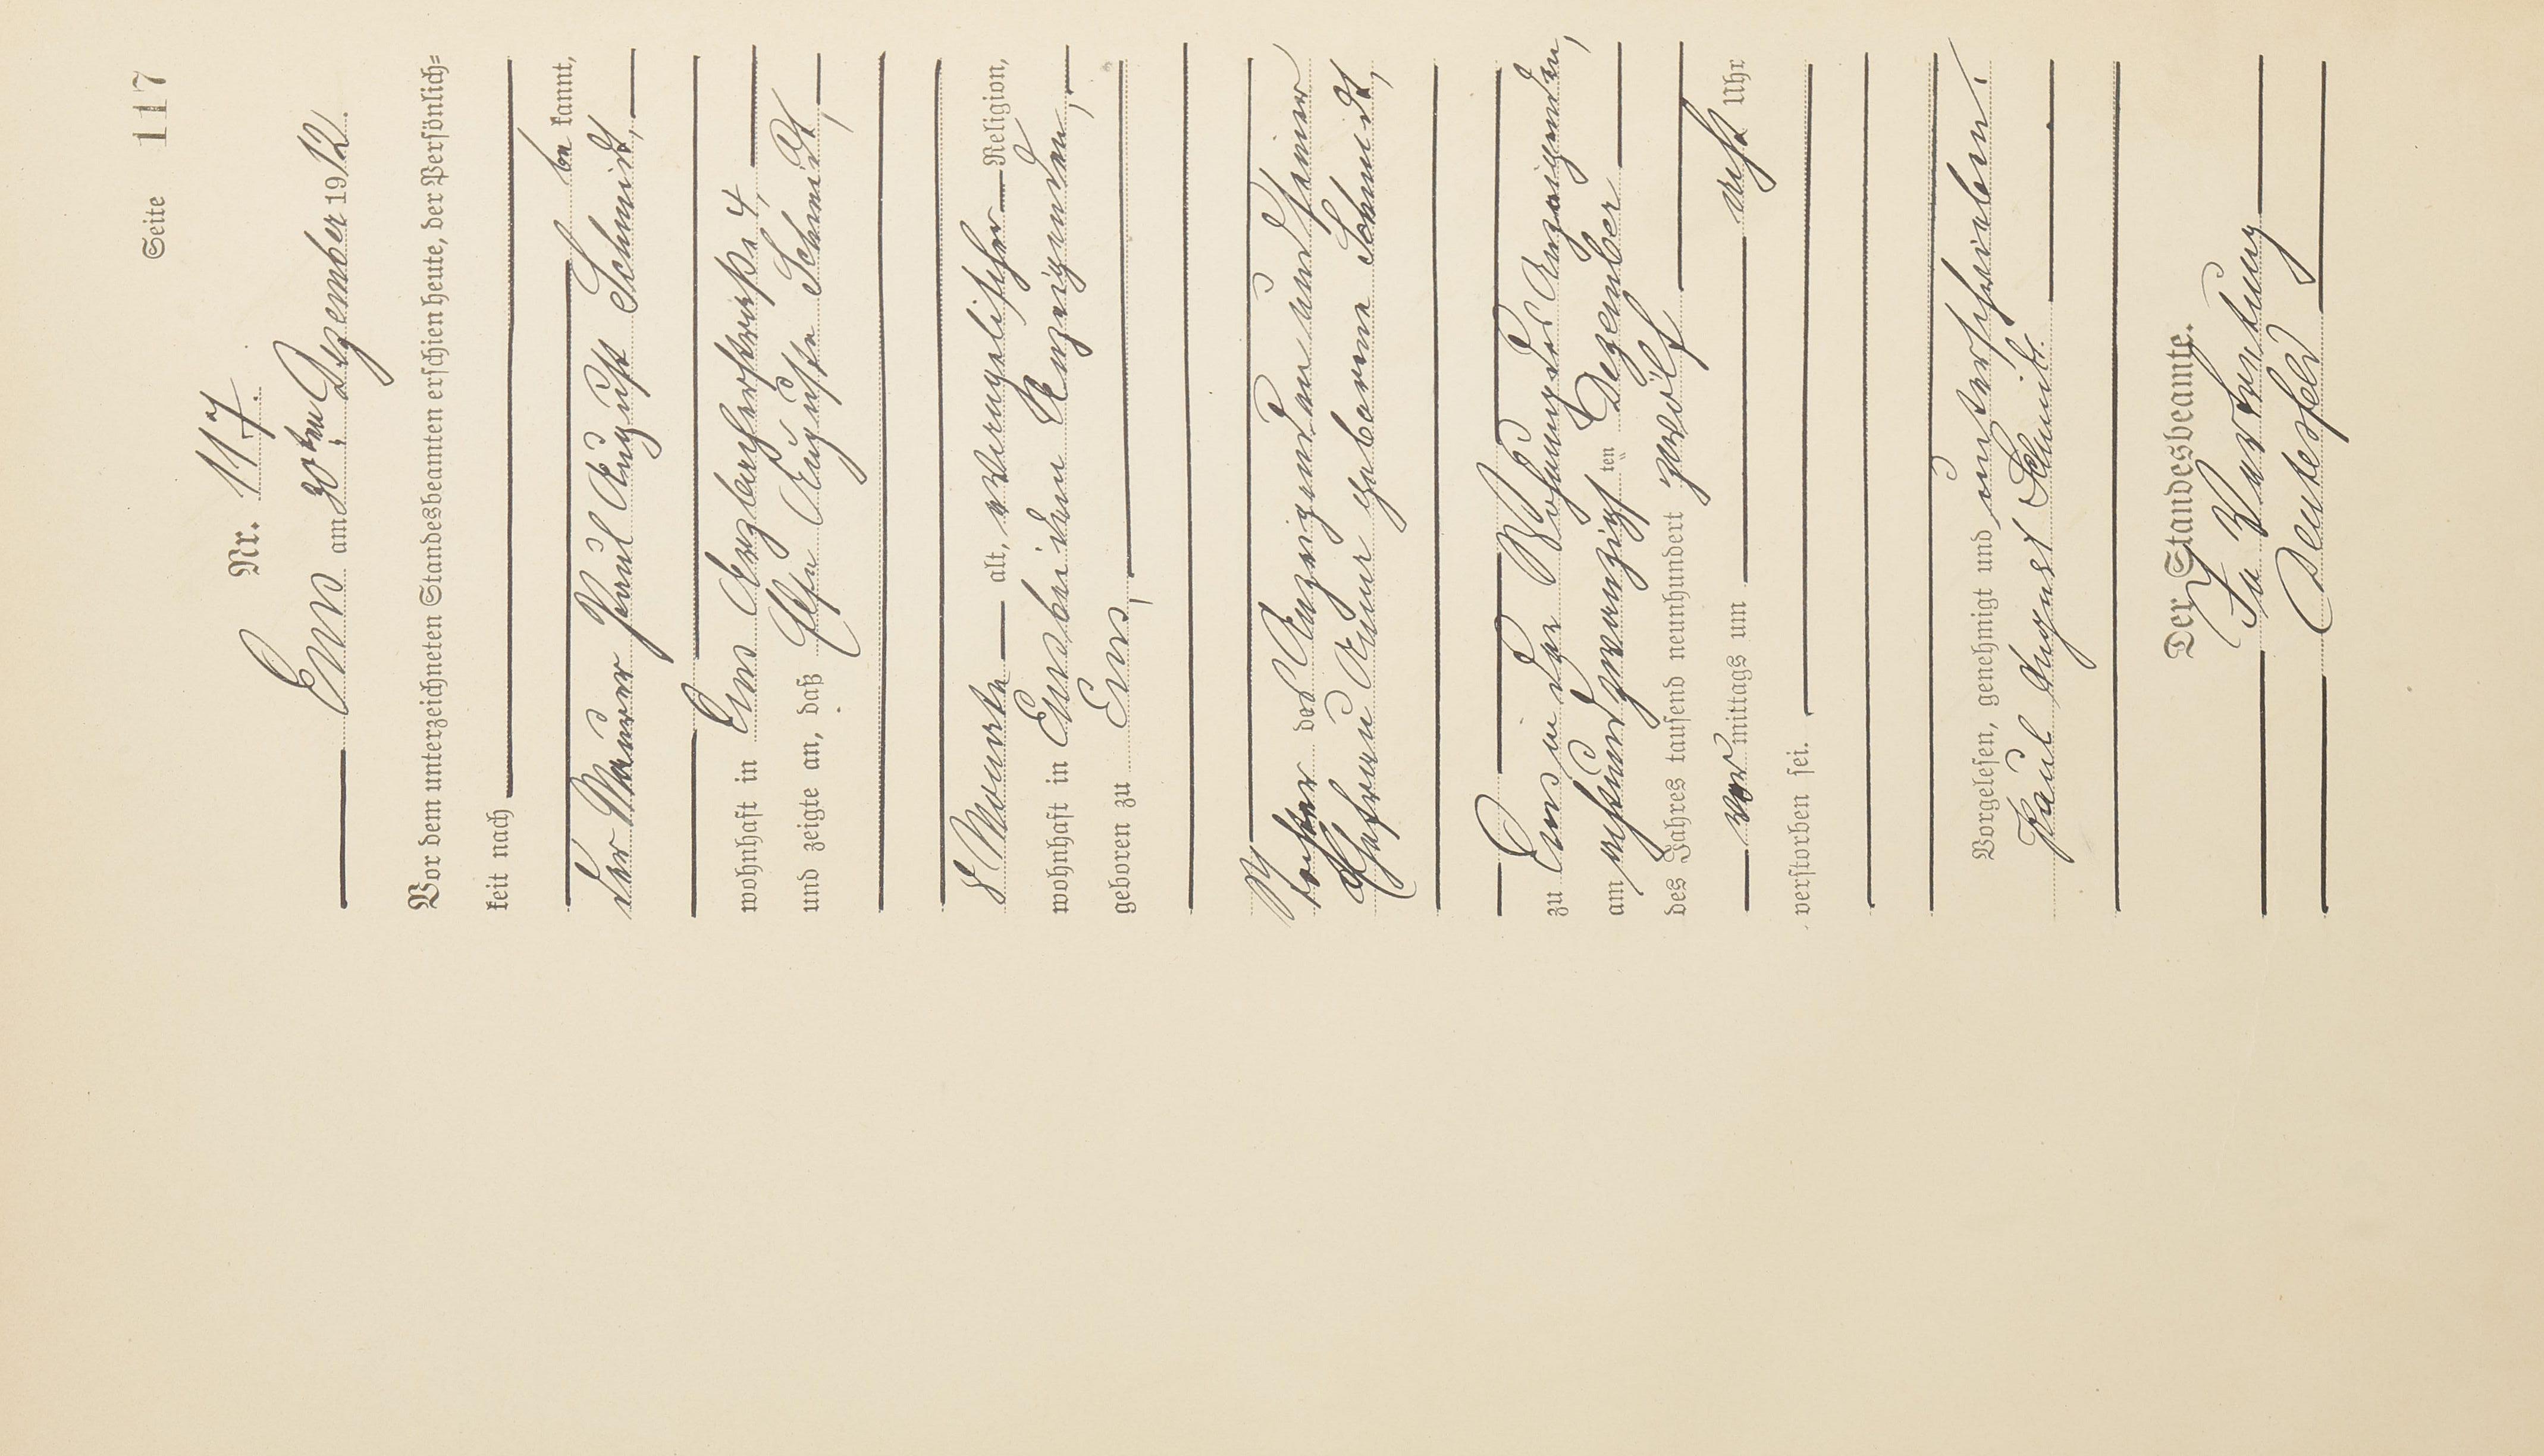 Seite 117
Nr. 117.
Ems am 30ten Dezember 1912.
Vor dem unterzeichneten Standesbeamten erschien heute, der Persönlich-
keit nach
be kannt,
der Maurer Paul August Schmidt,
wohnhaft in Ems Arzbacherstraße 4,
und zeigte an, daß Else Auguste Schmidt,
8 Monate alt, evangelischer Religion,
wohnhaft in Ems bei dem Anzeigenden,
geboren zu Ems,
Tochter des Anzeigenden und seiner
Ehefrau Anna geborene Schmidt,
zu Ems in der Wohnung des Anzeigenden,
am achtundzwanzigsten Dezember
des Jahres tausend neunhundert zwölf
vor mittags um acht Uhr
verstorben sei.
Vorgelesen, genehmigt und unterschrieben.
Paul August Schmidt.
Der Standesbeamte.
In Vertretung